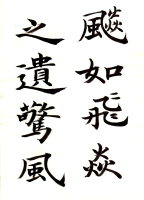 飈如飛焱
之遺驚風